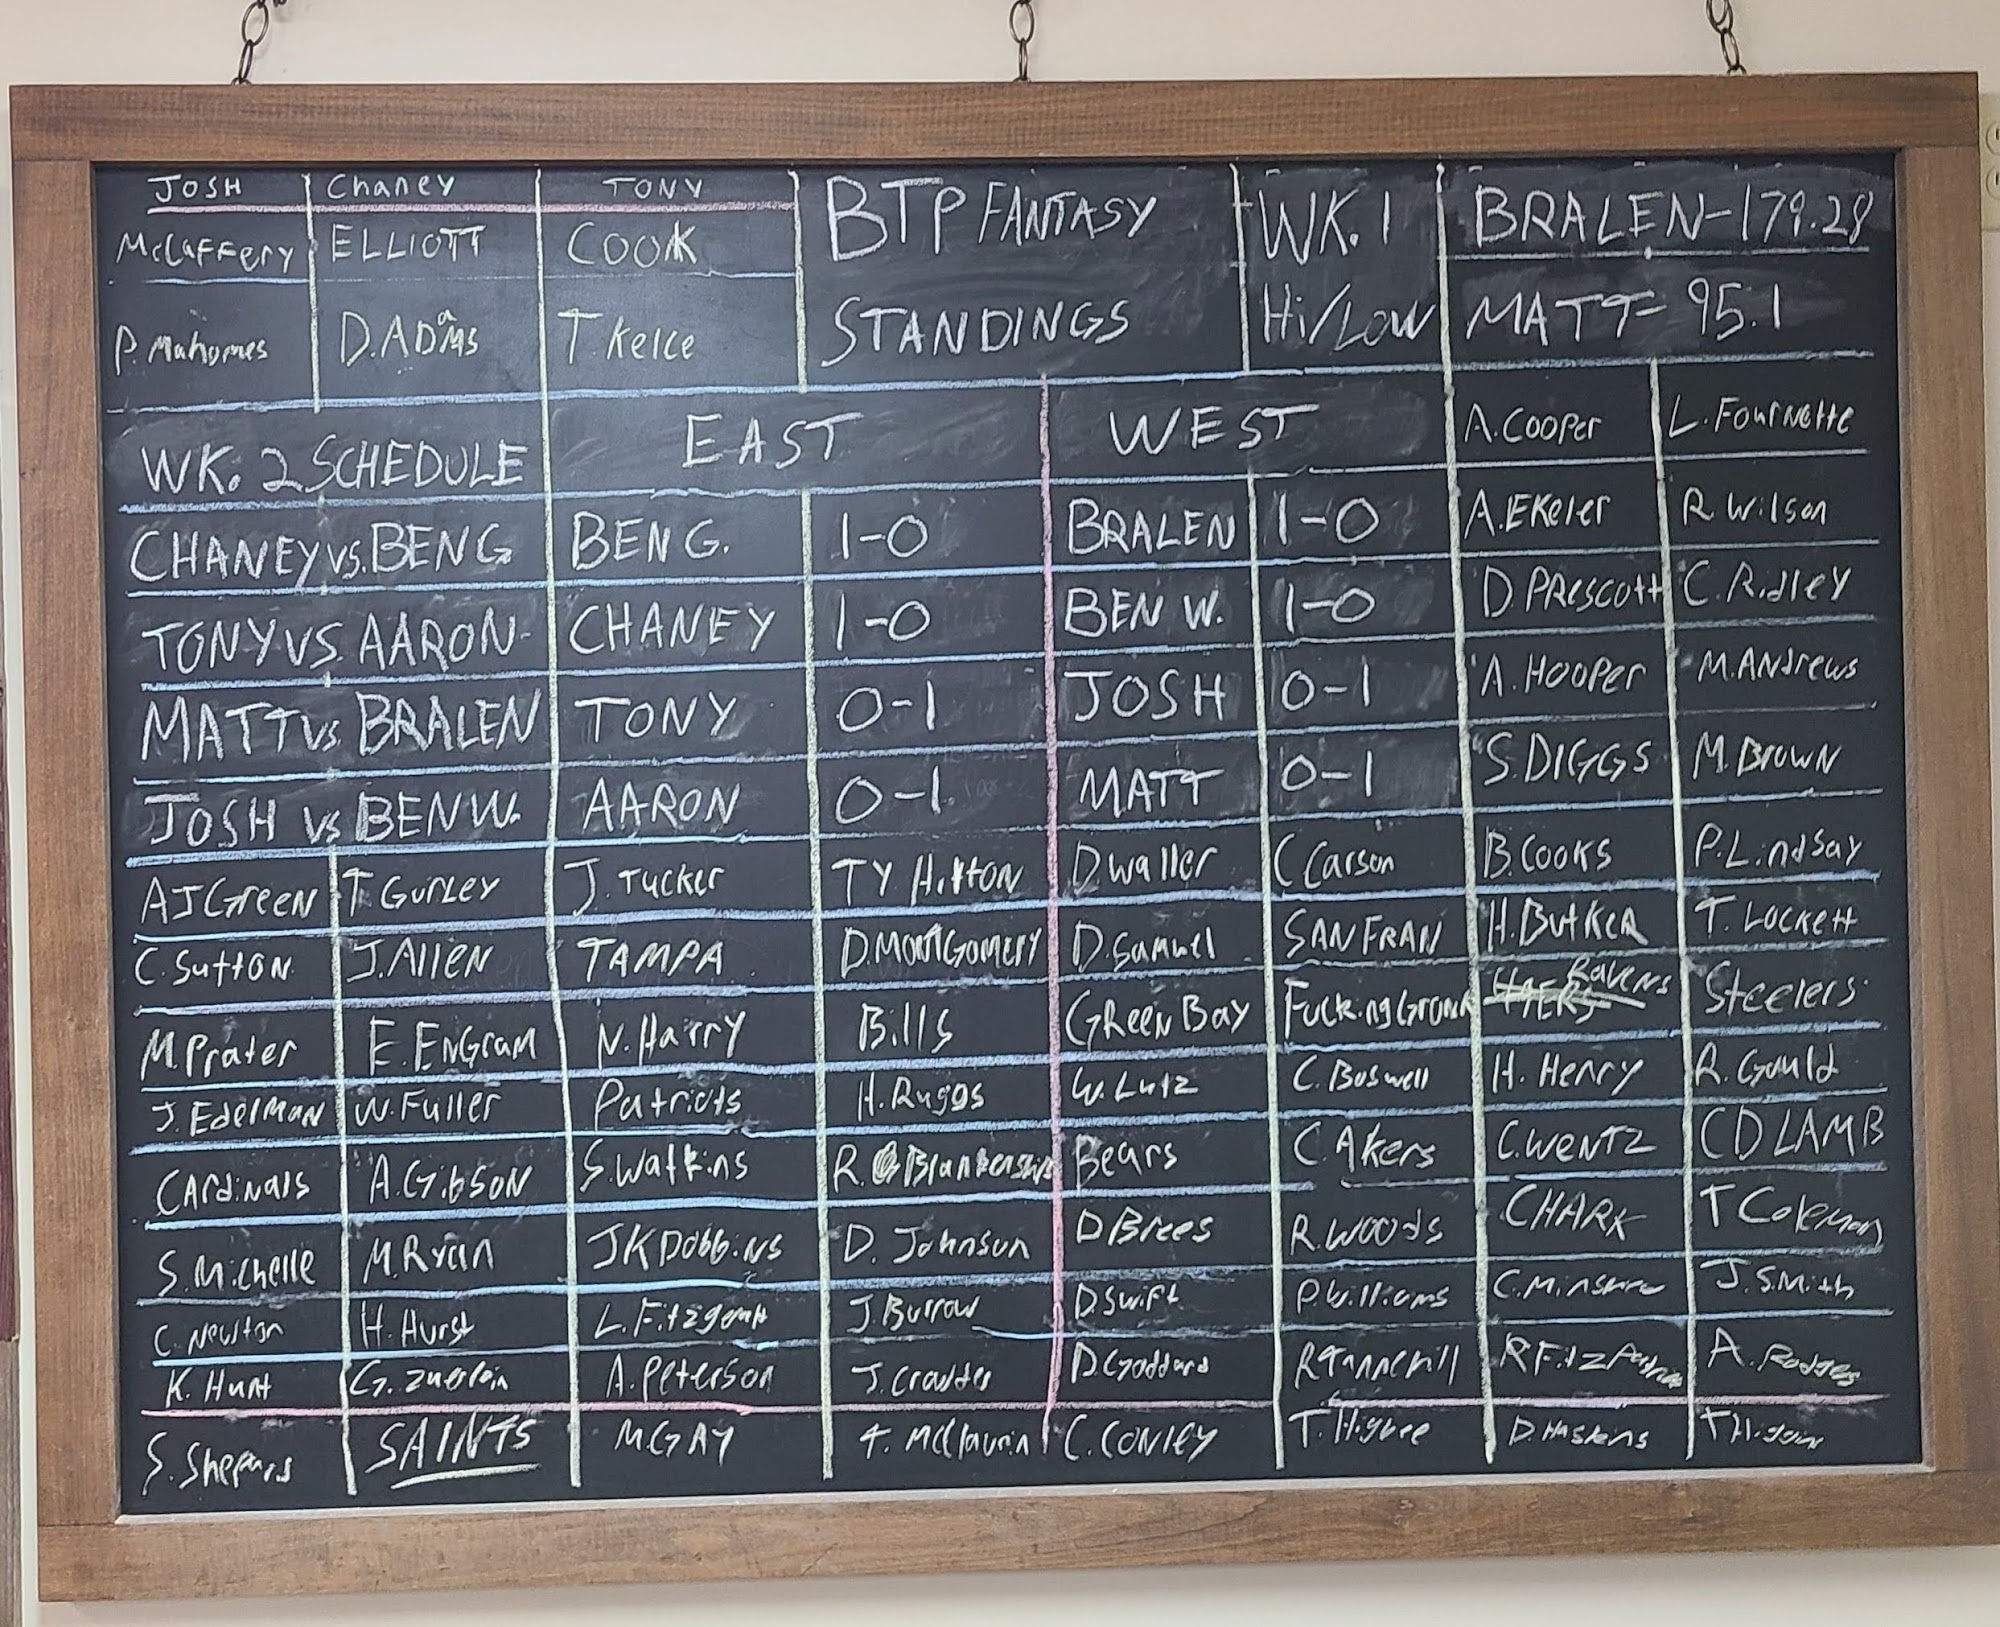 JOSH Chaney TONY BTP FANTASY WK. 1 BRALEN-179.28
McCaffery ELLIOTT COOK
P. Mahomes D. ADAMS T. Kelce STANDINGS Hi/Low MATT- 95.1
WK. 2 SCHEDULE EAST WEST A. Cooper L. Fournette
CHANEY vs. BEN G BEN G. 1-0 BRALEN 1-0 A. EKeler R Wilson
TONY VS. AARON- CHANEY 1-0 BEN W. 1-0 D PRESCOTT C. Ridley
MATT vs BRALEN TONY 0-1 JOSH 0-1 A. HOOPER M. Andrews
JOSH vs BEN W. AARON 0-1 MATT 0-1 S. DIGGS M. Brown
AJ Green T GURLEY J. TUCKER TY HILTON D. Waller C Carson B. COOKS P. Lindsay
C. SUTTON J. Allen TAMPA D. MONTGOMERY D. Samuel SAN FRAN H. BUTKER T. LOCKETT
M. Prater E. ENGram N. Harry Bills GREEN BAY Fucking Gronk Ravens Steelers
J. EDELMAN W. FULLER Patriots H. Ruggs W. Lutz C. Boswell H. Henry R. Gould
CArdinals A. GibSON S. Watkins R. Blankenship Bears C. Akers C. WENTZ CD LAMB
S. Michelle M. Ryan JK Dobbins D. Johnson D Brees R. WOODS CHARK T Coleman
C. Newton H. Hurst L. Fitzgerald J. Burrow D. Swift P. Williams C. Minshew J. Smith
K. Hunt G. Zuerlein A. Peterson J. Crowder D. Goddard R Tannehill R Fitzpatrick A. Rodgers
S. Shepard SAINTS M. GAY T. McClaurin C. CONLEY T. Higbee D. Haskins